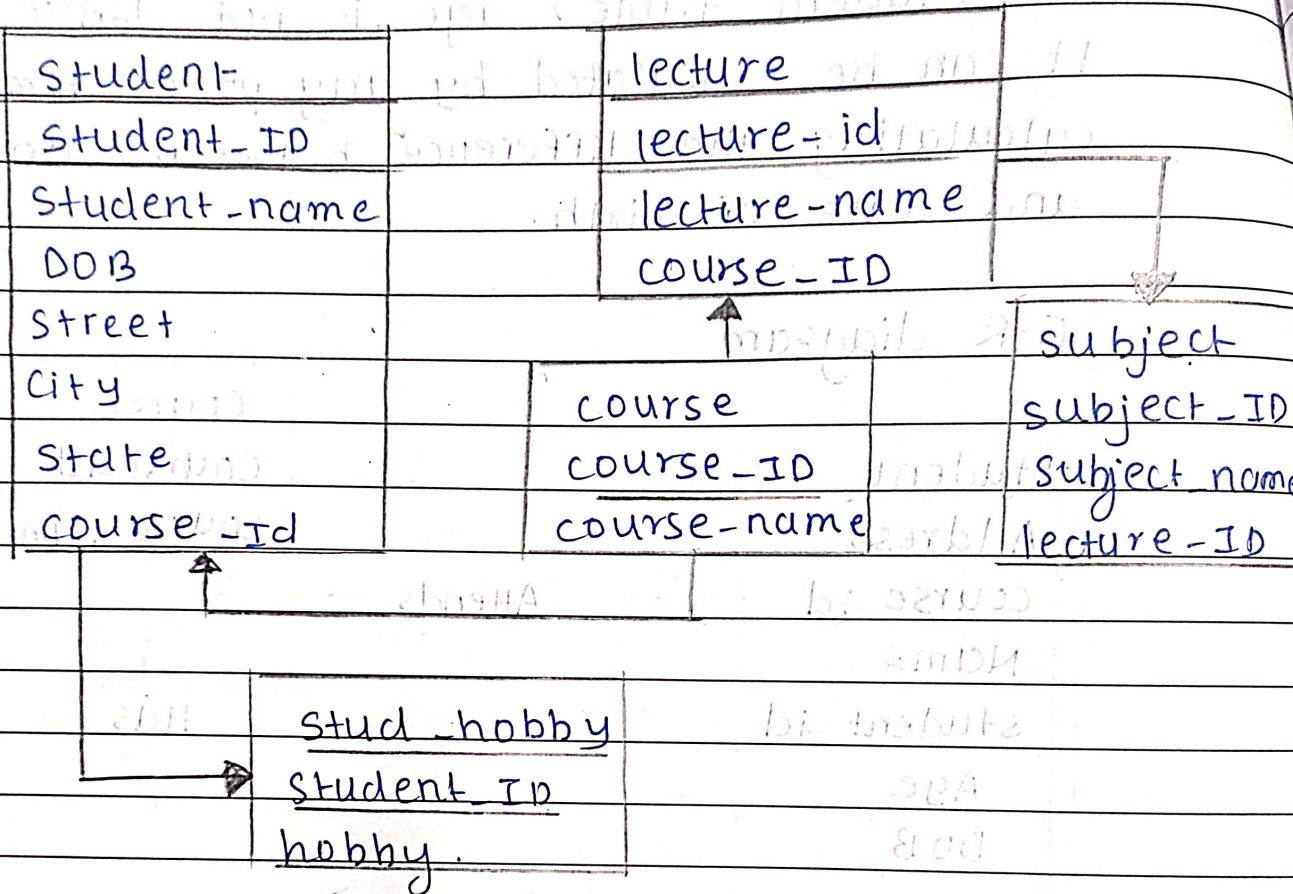 Student
Student_ID
Student_name
DOB
Street
City
State
course_Id
lecture
lecture_id
lecture_name
course_ID
course
course_ID
course_name
subject
subject_ID
subject_name
lecture_ID
stud_hobby
Student_ID
hobby.